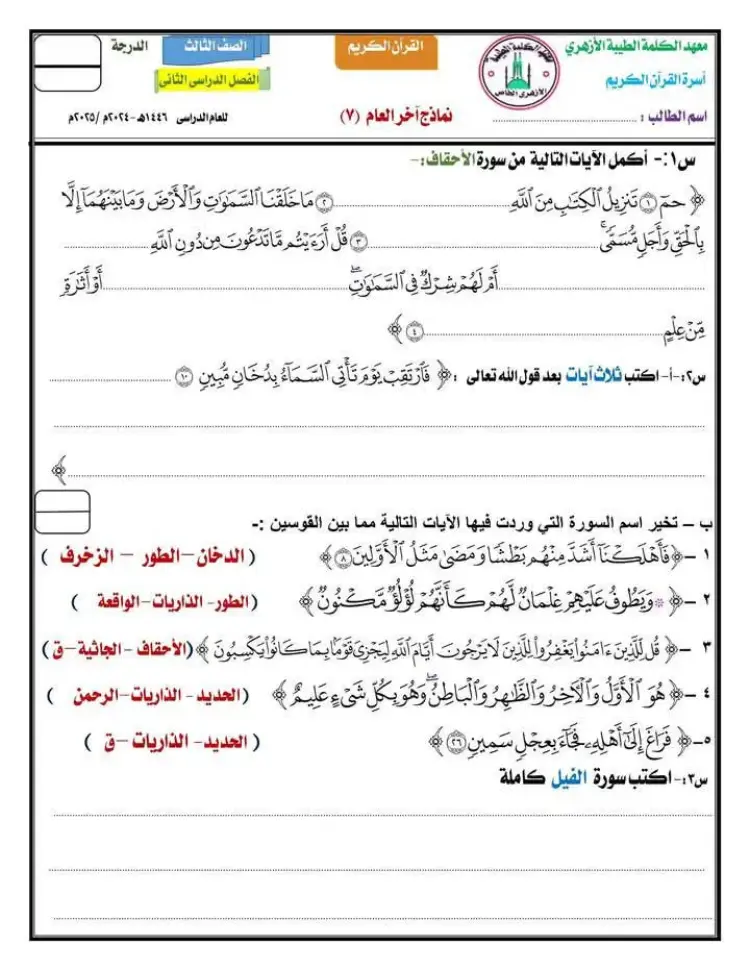 معهد الكلمة الطيبة الأزهري
القرآن الكريم
الصف الثالث
الدرجة
أسرة القرآن الكريم
الفصل الدراسى الثانى
اسم الطالب : ........................................
نماذج آخر العام (٧)
للعام الدراسى ١٤٤٦هـ -٢٠٢٤م /٢٠٢٥م
معهد الكلمة الطيبة
الأزهرى الخاص
س١:- أكمل الآيات التالية من سورة الأحقاف:-
﴿ حمٓ ١ تَنزِيلُ ٱلْكِتَٰبِ مِنَ ٱللَّهِ........................................٢ مَا خَلَقْنَا ٱلسَّمَٰوَٰتِ وَٱلْأَرْضَ وَمَا بَيْنَهُمَآ إِلَّا
بِٱلْحَقِّ وَأَجَلٍ مُّسَمًّى ........................................٣ قُلْ أَرَءَيْتُم مَّا تَدْعُونَ مِن دُونِ ٱللَّهِ........................
........................................أَمْ لَهُمْ شِرْكٌ فِى ٱلسَّمَٰوَٰتِ ........................................أَوْ أَثَٰرَةٍ
مِّنْ عِلْمٍ........................................٤ ﴾
س٢:-أ- اكتب ثلاث آيات بعد قول الله تعالى :﴿ فَٱرْتَقِبْ يَوْمَ تَأْتِى ٱلسَّمَآءُ بِدُخَانٍ مُّبِينٍ ١٠ ........................
........................................
........................................﴾
ب – تخير اسم السورة التي وردت فيها الآيات التالية مما بين القوسين :-
١ -﴿ فَأَهْلَكْنَآ أَشَدَّ مِنْهُم بَطْشًا وَمَضَىٰ مَثَلُ ٱلْأَوَّلِينَ ٨ ﴾ ( الدخان–الطور – الزخرف )
٢ -﴿ ۞ وَيَطُوفُ عَلَيْهِمْ غِلْمَانٌ لَّهُمْ كَأَنَّهُمْ لُؤْلُؤٌ مَّكْنُونٌ ﴾ (الطور- الذاريات-الواقعة )
٣ -﴿ قُل لِّلَّذِينَ ءَامَنُوا۟ يَغْفِرُوا۟ لِلَّذِينَ لَا يَرْجُونَ أَيَّامَ ٱللَّهِ لِيَجْزِىَ قَوْمًۢا بِمَا كَانُوا۟ يَكْسِبُونَ ﴾ (الأحقاف - الجاثية-ق )
٤ -﴿ هُوَ ٱلْأَوَّلُ وَٱلْـَٔاخِرُ وَٱلظَّٰهِرُ وَٱلْبَاطِنُ ۖ وَهُوَ بِكُلِّ شَىْءٍ عَلِيمٌ ﴾ (الحديد - الذاريات-الرحمن )
٥-﴿ فَرَاغَ إِلَىٰٓ أَهْلِهِۦ فَجَآءَ بِعِجْلٍ سَمِينٍ ٢٦ ﴾ ( الحديد- الذاريات –ق )
س٣:-اكتب سورة الفيل كاملة
........................................
........................................
........................................